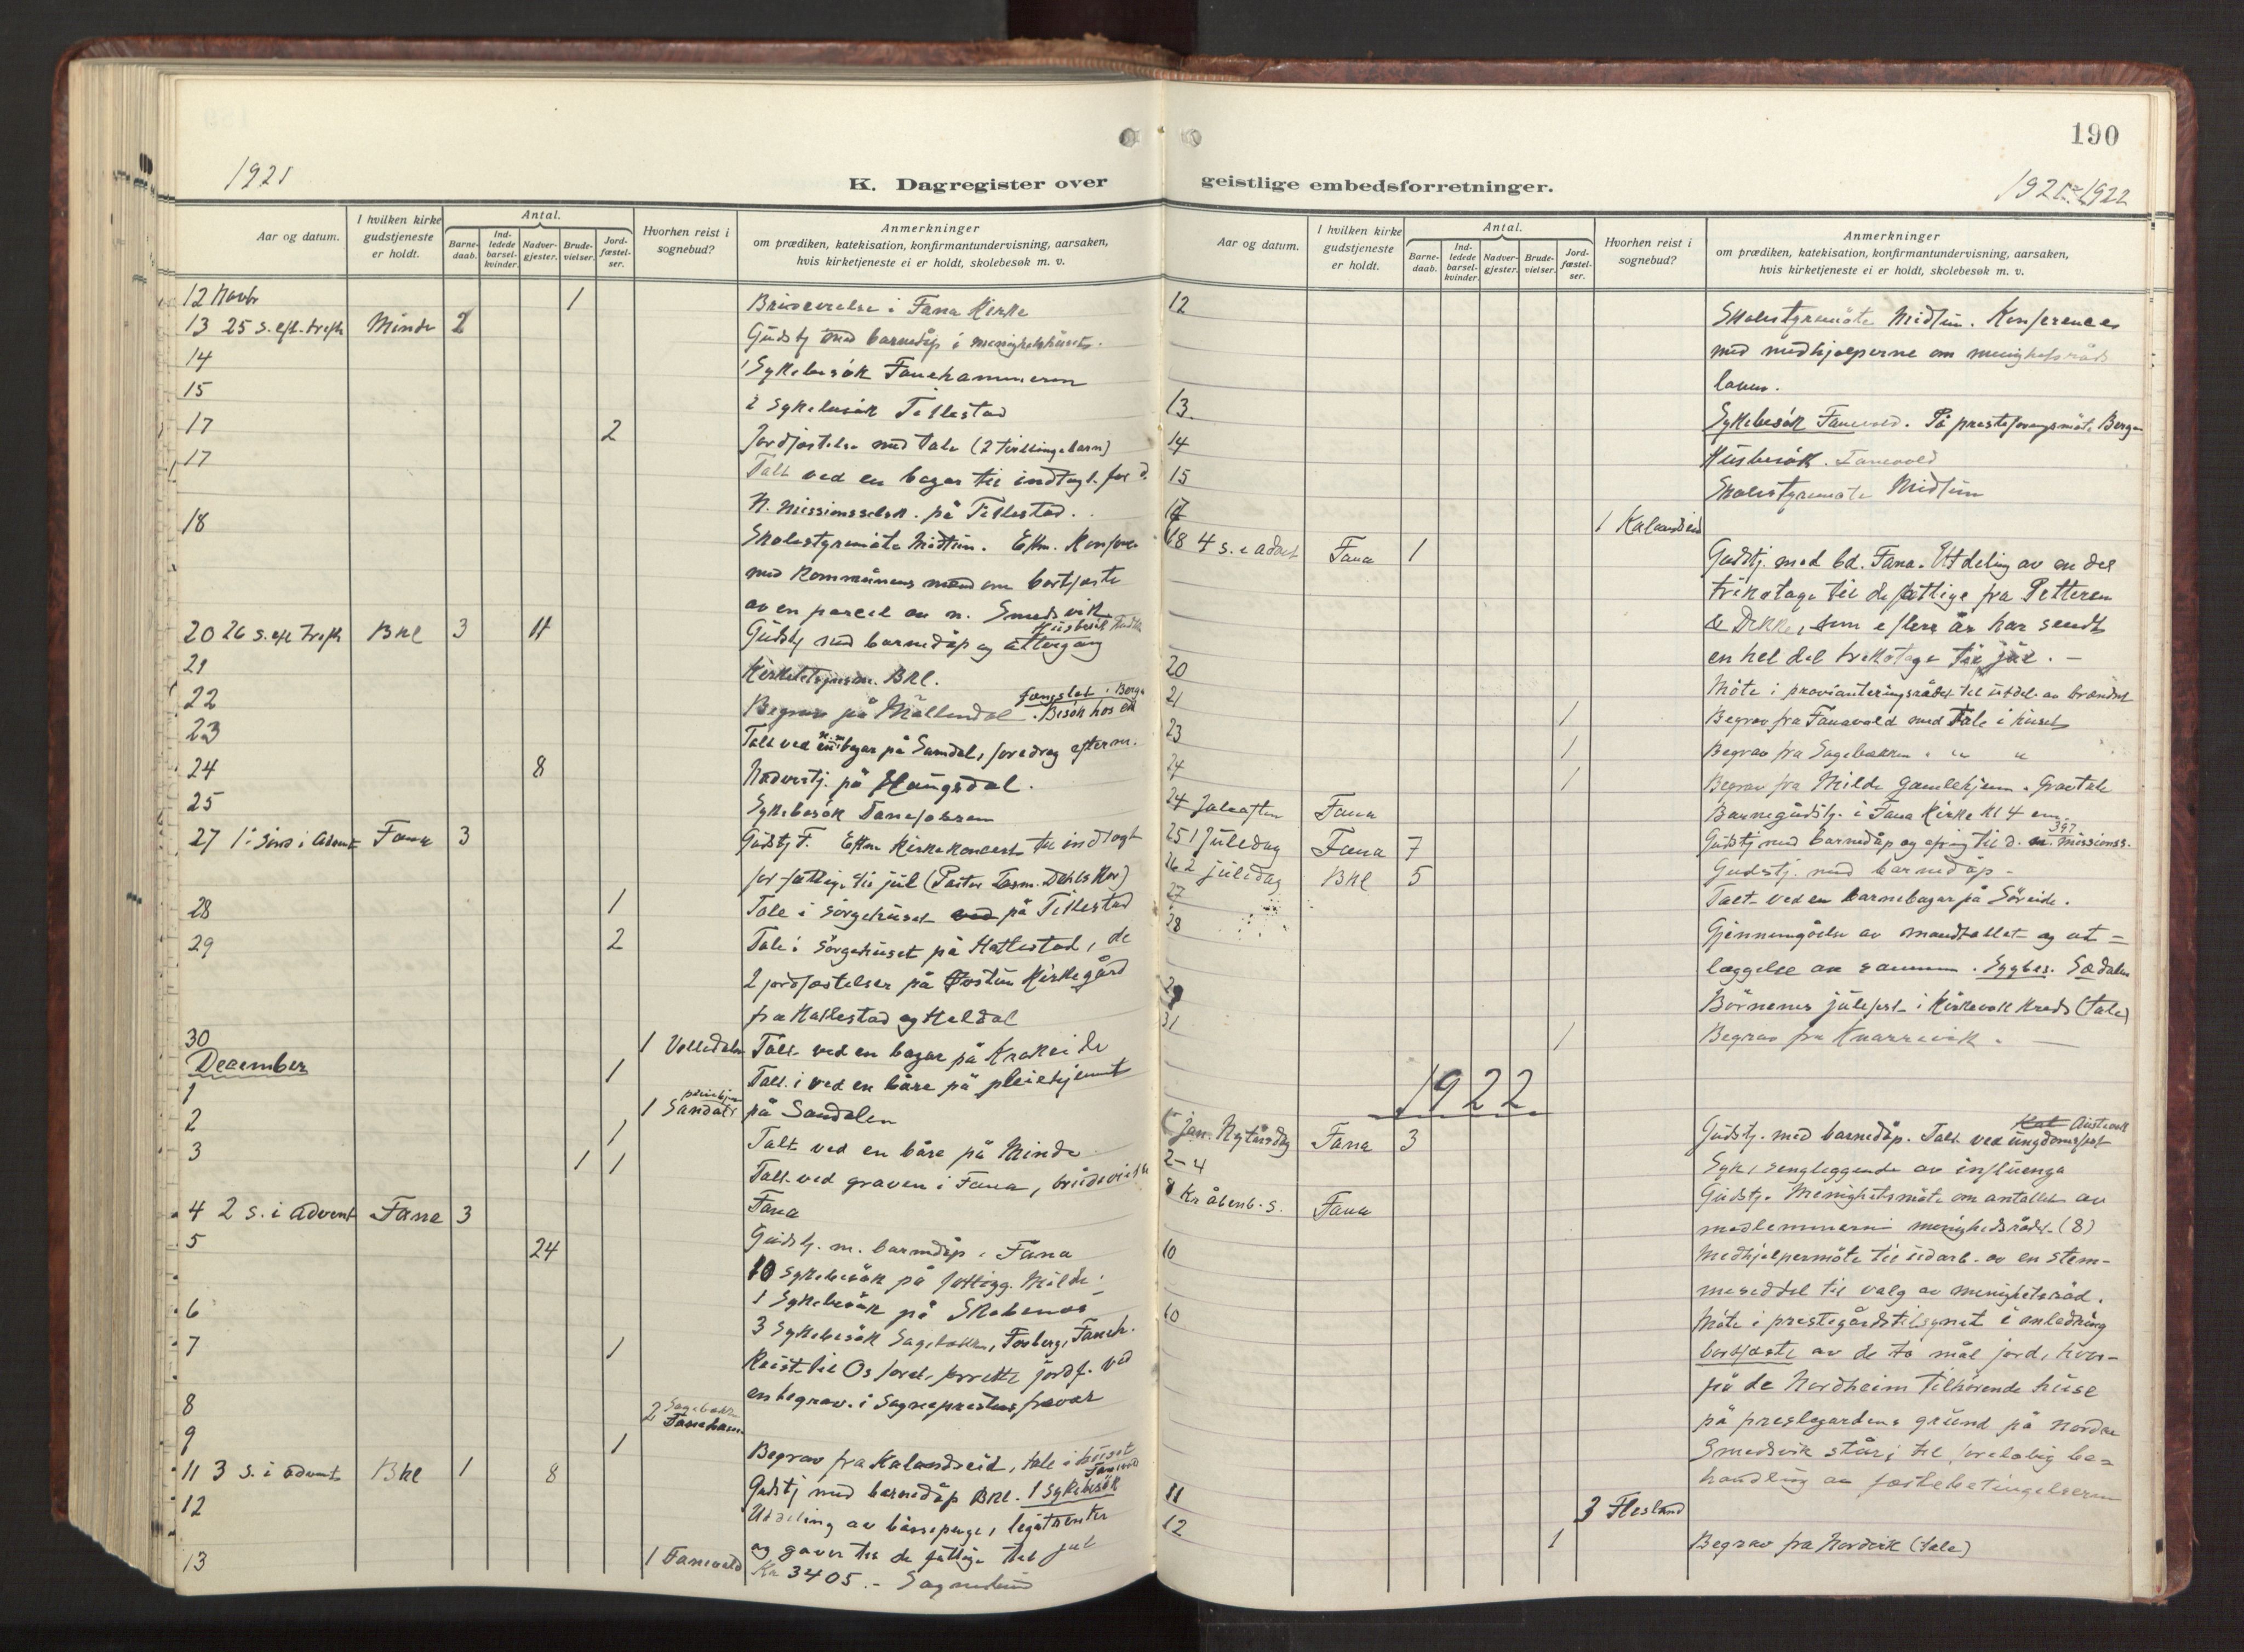 1921
K. Dagregister over
Aar og datum.
I hvilken kirke gudstjeneste er holdt.
Antal.
Barne-daab.
Ind-ledede barsel-kvinder.
Nadver-gjester.
Brude-vielser.
Jord-fæstel-ser.
Hvorhen reist i sognebud?
Anmerkninger
om prædiken, katekisation, konfirmantundervisning, aarsaken,
hvis kirketjeneste ei er holdt, skolebesøk m. v.
12 Novbr 1 i Fana Kirke
13 25 s. eft. trefh Minde 2 Gudstj med barnedåp i menighetshuset.
14 1 Sykebesök Fanehammeren
15 2 Sykebesök Tillestad
17 2 Jordfæstelse med tale (2 tvillingebarn)
17 Talt ved en bazar til indtægt for d.
N. Missionsselsk. på Tillestad.
18 Skolestyremöte Midtun. Eftm.
med Kommunens mænd om bortfæste
av en parcel av n. Smedsvik
20 26 s. eft trefh BKL 3 11 Husbesök
Gudstj med barnedåp og altergang
21 BKL.
22 Begrav på Möllendal. Besök hos en
fængslet i Bergen
23 Talt ved en bazar på Samdal, foredrag efterm.
24 8 Nadverstj. på Haugsdal.
25 Sykebesök
27 1. sönd i Advent Fana 3 Gudstj F. Eftm Kirkekoncert til indtægt
for fattige til jul (Pastor Dahls Kor)
28 1 Tale i sörgehuset på Tillestad
29 2 Tale i Sörgehuset på Hatlestad, de
2 jordfæstelser på Kirkegård
fra Hatlestad og Heldal
30 1 Talt ved en bazar på Krokeide
December
1 1 Talt i ved en båre på pleiehjemet
2 1 Sandalr på Sandalen
3 1 Talt ved en båre på Minde
1 1 Talt ved graven i Fana, brudevielse
4 2 s. i Advent Fana 3 Fana
5 24 Gudstj. m. barnedåp i Fana
10 sykebesök på Milde.
1 Sykebesök på
6 3 Sykebesök Sagebakken, Fosberg, Faneh.
7 1 Reist til Os for at forrette jordf. ved
en begrav. i Sogneprestens fravær
8 2 Sagebakk
Faneham.
9 1 Begrav fra Kalandseid, tale i huset
11 3 s. i advent BKL 1 8 Gudstj med barnedåp BKL. 1 Sykebesök
Fanevold
12 Utdeling av bössepenge, legatrenter
og gaver til de fattige til jul
13 1 Fanevold Kr 3405.-
190
1921-1922
geistlige embedsforretninger.
Aar og datum.
I hvilken kirke gudstjeneste er holdt.
Antal.
Barne-daab.
Ind-ledede barsel-kvinder.
Nadver-gjester.
Brude-vielser.
Jord-fæstel-ser.
Hvorhen reist i sognebud?
Anmerkninger
om prædiken, katekisation, konfirmantundervisning, aarsaken,
hvis kirketjeneste ei er holdt, skolebesøk m. v.
12 Skolestyremöte Midtun. Konferences
med medhjelperne om menighetsråds
loven.
13. Sykebesök Fanevold. På prestefor­eningsmöte Bergen
14 Husbesök. Fanevold
15 Skolestyremöte Midtun
17 1 Kalandseid
18 4 s. i advent Fana 1 Gudstj. med bd. Fana. Utdeling av en del
trikotage til de fattige fra Petterson
& Dekke, som i flere år har sendt
en hel del trikotage til jul. —
20 Möte i provianteringsrådet til utdel. av brændsel
21 1 Begrav fra Fanavold med tale i huset
23 1 Begrav fra Sagebakken " " "
24 1 Begrav fra Milde gamlehjem. Gravtale
24 Juleaften Fana Barnegudstj. i Fana Kirke kl 4 em.
25 1 Juledag Fana 7 Gudstj med barnedåp og ofring til d. n. missionss.
26 2 juledag BKL 5 Gudstj. med barnedåp -
27 Talt ved en barnebazar på Söreide.
28 Gjennemgåelse av mandtallet og ut=
læggelse av samme. Sygbes. Sædalen
29 Börnenes julefest i Kirkevoll Kreds (tale)
31 1 Begrav fra Knarrevik. —
1922
1 jan. Nytårsdag Fana 3 Gudstj. med barnedåp. Talt ved ungdomsfest
2-4 Syk, sengeliggende av influenza
8 Kr åbenb. s. Fana Gudstj. Menighetsmöte om antallet av
medlemmerne i menighedsrådet (8)
10 Medhjelpermöte til utarb. av en stem-
meseddel til valg av menighetsråd.
10 Möte i prestegårdstilsynet i anledning
bortfæste av de to mål jord, hvor-
på de Nordheim tilhörende huse
på prestegardens grund på nordre
Smedsvik står, til forelöbig be=
handling av fæstebetingelserne
11 3 Flesland
12 1 Begrav fra Nordvik (tale)